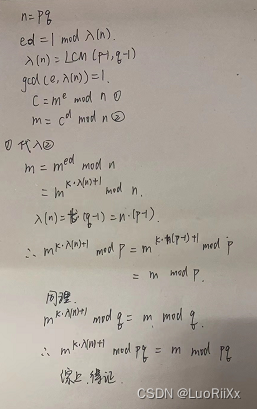 n=pq
ed=1 mod λ(n).
λ(n)=LCM(p-1,q-1)
gcd(e,λ(n))=1.
C=m^e mod n ①
m=c^d mod n ②
① 代入②
m=m^{ed} mod n
=m^{k·λ(n)+1} mod n.
λ(n)= (q-1)=n·(p-1).
∴ m^{k·λ(n)+1} mod p=m^{k·n(p-1)+1} mod p
=m mod p.
同理.
m^{k·λ(n)+1} mod q=m mod q.
∴ m^{k·λ(n)+1} mod pq=m mod pq
综上,得证.
CSDN @LuoRiiXx